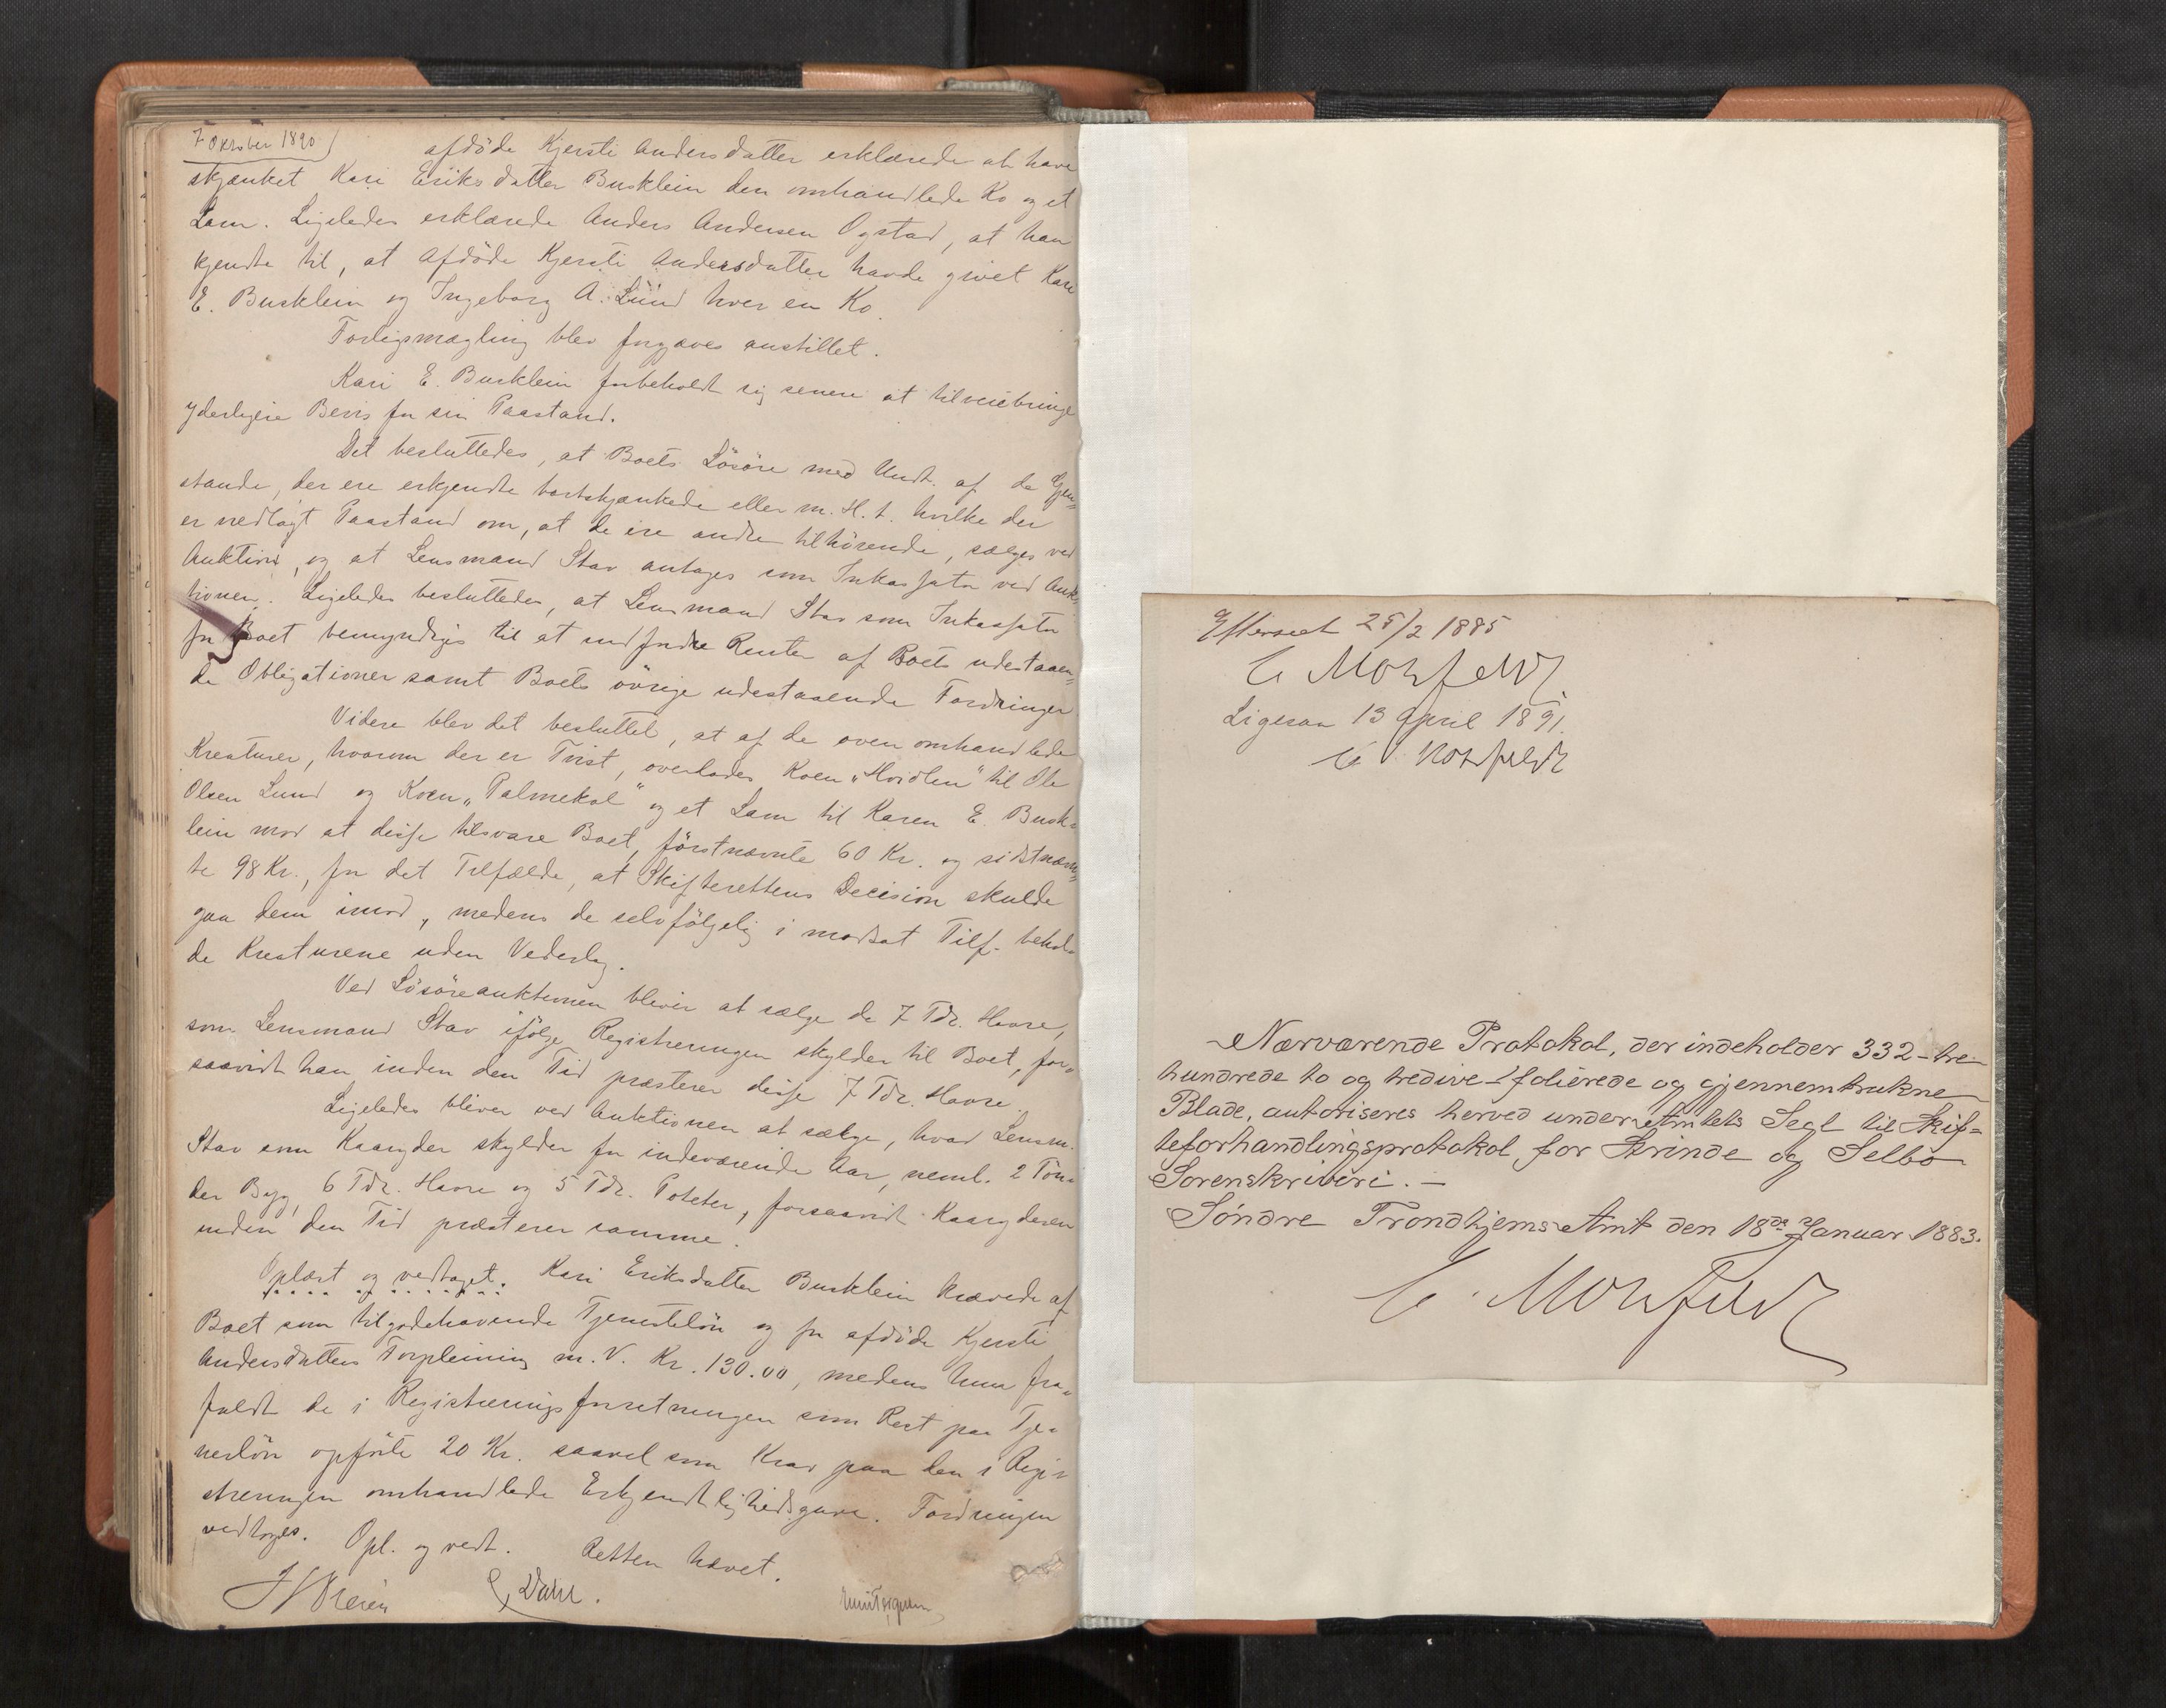 7 Oktober 1890
afdöde Kjersti Andersdatter erklærede at have
skjænket Kari Eriksdatter Busklein den omhandlede Ko og et
Lam. Ligeledes erklærede Anders Andersen Ogstad, at han
kjendte til, at Afdöde Kjersti Andersdatter havde givet Kari
E. Busklein og Ingeborg A. Lund hver en Ko.
Forligsmægling blev forgjæves anstillet.
Kari E. Busklein forbeholdt sig senere at tilveiebringe
yderligere Bevis for sin Paastand.
Det besluttedes, at Boets Lösöre med Undt. af de Gjen-
stande, der ere erkjendte bortskjænkede eller m. H. t. hvilke der
er nedlagt Paastand om, at de ere andre tilhörende, sælges ved
Auktion, og at Lensmand Stav antages som Inkassator ved Auk-
tionen. Ligeledes besluttedes, at Lensmand Stav som Inkassator
for Boet bemyndiges til at indfordre Renter af Boets udestaaen-
de Obligationer samt Boets övrige udestaaende Fordringer
Videre blev det besluttet, at af de oven omhandlede
Kreaturer, hvorom der er Tvist, overlades Koen „Hvidlin" til Ole
Olsen Lund og Koen „Palmekol" og et Lam til Karen E. Busk-
lein mod at disse tilsvare Boet, förstnævnte 60 Kr. og sidstnævn-
te 98 Kr., for det Tilfælde, at Skifterettens Decision skulde
gaa dem imod, medens de selvfölgelig i modsat Tilf. behol-
de Kreaturene uden Vederlag.
Ved Lösöreauktionen bliver at sælge de 7 Tdr. Havre,
som Lensmand Stav ifölge Registreringen skylder til Boet, for-
saavidt han inden den Tid præsterer disse 7 Tdr. Havre.
Ligeledes bliver ved Auktionen at sælge, hvad Lensm.
Stav som Kaaryder skylder for indeværende Aar, neml. 2 Tön-
der Byg, 6 Tdr. Havre og 5 Tdr. Poteter, forsaavidt Kaaryderen
inden den Tid præsterer samme.
Oplæst og vedtaget. Kari Eriksdatter Busklein krævede af
Boet som tilgodehavende Tjenestelön og for afdöde Kjersti
Andersdatters Forpleining m. V. Kr. 130.00, medens hun fra-
faldt de i Registreringsforretningen som Rest paa Tje-
nerlön opförte 20 Kr. saavel som Krav paa den i Regi-
streringen omhandlede Erkjendtlighedsgave. Fordringen
vedtoges. Opl. og vedt. Retten hævet.
Efterseet 25/2 1885
C Motzfeldt
Ligesaa 13 April 1891.
C Motzfeldt
Nærværende Protokol, der indeholder 332 - tre
hundrede to og tredive - folierede og gjennemtrukne
Blade, autoriseres herved under Amtets Segl til Skif-
teforhandlingsprotokol for Strinde og Selbo
Sorenskriveri. -
Söndre Trondhjems Amt den 18de Januar 1883.
C. Motzfeldt